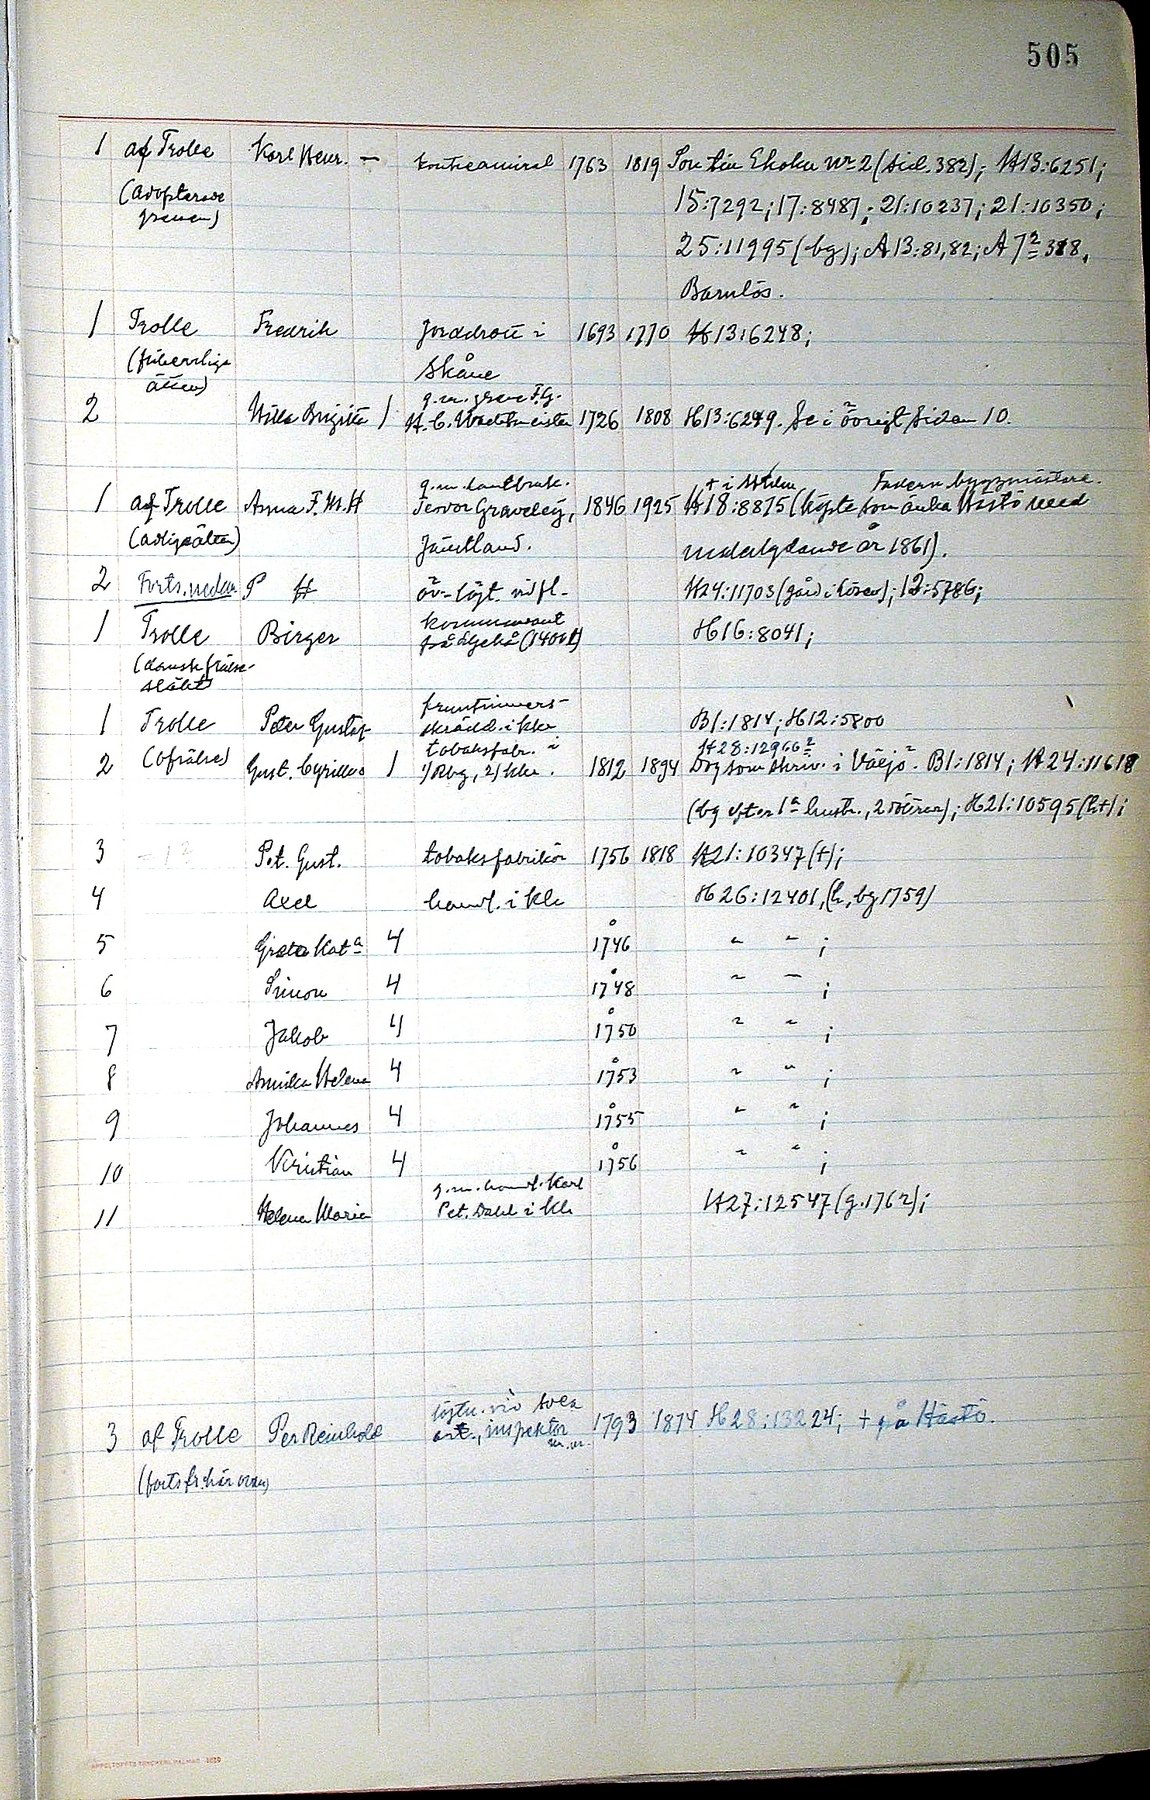 505
1 af Trolle Karl Henr. — konteramiral 1763 1819 Son till Ehoku nr 2 (sid. 382); H13:6251;
(adopterade 15:7292; 17:8487; 21:10237; 21:10350;
grenen)
25:11995 (bg); A13:81,82; A7² 388.
Barnlös.
1 Trolle Fredrik Jorddrott i 1693 1770 H13:6248;
(friherrliga Skåne
ätten)
g.m. greve F.G.
2 Ulla Brigitta 1 H. C. Wachtmeister 1726 1808 H13:6249. Se i övrigt sidan 10.
g.m. lantbruk. + i Sthlm Fadern byggmästare.
1 af Trolle Anna F. M. H Graveley, 1846 1925 H18:8875 (köpte som änka Hästö med
(adliga ätten) Jämtland. år 1861).
2 Forts. nedan P H öv.-löjt. vid fl- H24:11703 (gård i ); 12:5786;
1 Trolle Birger kommendant H16:8041;
(dansk frälse- på (1400t)
släkt)
fruntimmers-
1 Trolle Peter Gustaf skrädd. i Kkr B1:1814; H12:5800
(ofrälse) tobaksfabr. i H28:12966²
2 Gust. Cyrillus 1 1/ Rbg, 2/ Kkr. 1812 1894 Dog som skriv. i Växjö. B1:1814; H24:11618
(bg efter 1a hustr., 2 döttrar); H21:10595 (h+);
3 Pet. Gust. tobaksfabrikör 1756 1818 H21:10347 (+);
4 Axel handl. i Kk H26:12401, (h, bg 1759)
5 Greta Kata 4 1746 " " ;
6 Simon 4 1748 " " ;
7 Jakob 4 1750 " " ;
8 Annika Helena 4 1753 " " ;
9 Johannes 4 1755 " " ;
10 Kristian 4 1756 " " ;
g.m. handl. Karl
11 Helena Maria Pet. Dahl i Kk H27:12547 (g. 1762);
löjtn. vid Svea
3 af Trolle Per Reinhold art., inspektor 1793 1874 H28:13224; + på Hästö.
m.m.
(forts fr. här ovan)